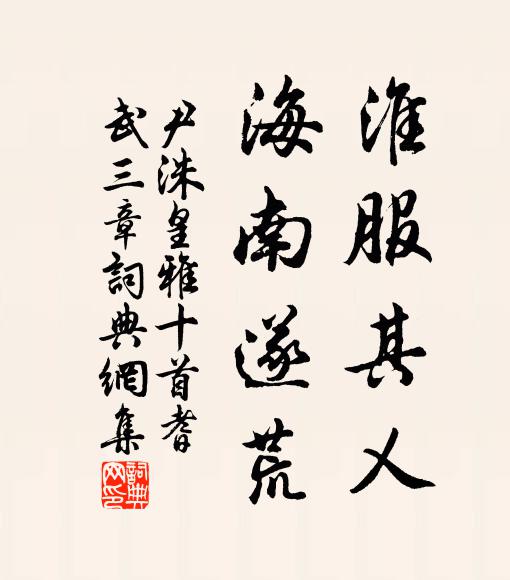 淮服其乂
海南遂荒
尹洙皇雅十首耆
武三章詞典網集
詞典
网印